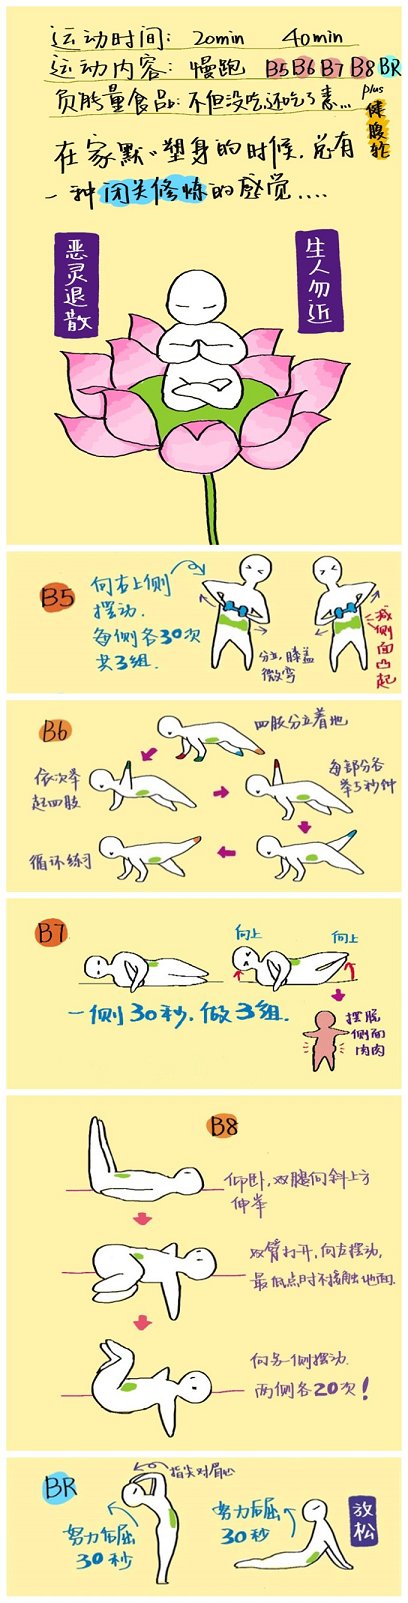 运动时间: 20min 40min
运动内容: 慢跑 B5 B6 B7 B8 BR
plus
健腹轮
负能量食品: 不但没吃,还吃了素...
在家默默塑身的时候,总有
一种闭关修炼的感觉....
恶灵退散
生人勿近
B5
向右上侧
摆动.
每侧各30次
共3组.
分立,膝盖
微弯
减侧面凸起
B6
四肢分立着地
依次举
起四肢
每部分各
举5秒钟
循环练习
B7
向上
向上
一侧30秒,做3组.
摆脱
侧面
肉肉
B8
仰卧,双腿向斜上方
伸举
双臂打开,向左摆动,
最低点时不接触地面.
向另一侧摆动.
两侧各20次!
BR
指尖对眉心
努力后屈
30秒
努力后屈
30秒
放松